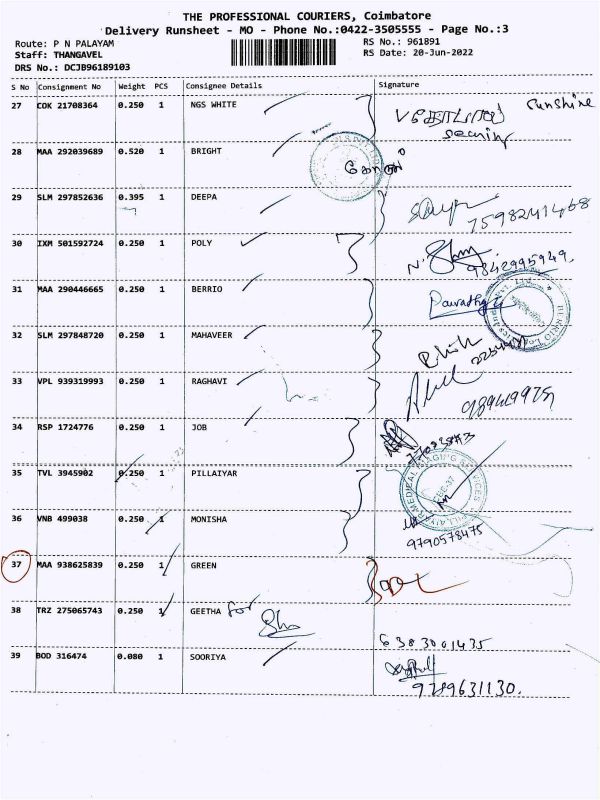 THE PROFESSIONAL COURIERS, Coimbatore
Delivery Runsheet - MO - Phone No.:0422-3505555 - Page No.:3
Route: P N PALAYAM RS No.: 961891
Staff: THANGAVEL RS Date: 20-Jun-2022
DRS No.: DCJB96189103
S No Consignment No Weight PCS Consignee Details Signature
27 COK 21708364 0.250 1 NGS WHITE Sunshine
28 MAA 292039689 0.520 1 BRIGHT
29 SLM 297852636 0.395 1 DEEPA
30 IXM 501592724 0.250 1 POLY
9842995949.
31 MAA 290446665 0.250 1 BERRIO
32 SLM 297848720 0.250 1 MAHAVEER
33 VPL 939319993 0.250 1 RAGHAVI
34 RSP 1724776 0.250 1 JOB
35 TVL 3945902 0.250 1 PILLAIYAR
36 VNB 499038 0.250 1 MONISHA
9790578475
37 MAA 938625839 0.250 1 GREEN
38 TRZ 275065743 0.250 1 GEETHA for
6383001435
39 BOD 316474 0.080 1 SOORIYA
9789631130.